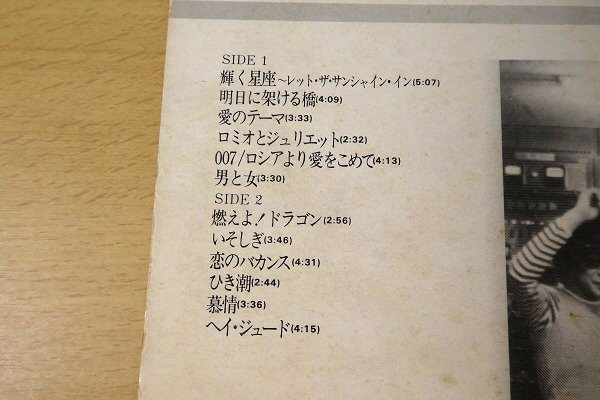 SIDE 1
輝く星座~レット・ザ・サンシャイン・イン(5:07)
明日に架ける橋(4:09)
愛のテーマ(3:33)
ロミオとジュリエット(2:32)
007/ロシアより愛をこめて(4:13)
男と女(3:30)
SIDE 2
燃えよ!ドラゴン(2:56)
いそしぎ(3:46)
恋のバカンス(4:31)
ひき潮(2:44)
慕情(3:36)
ヘイ・ジュード(4:15)